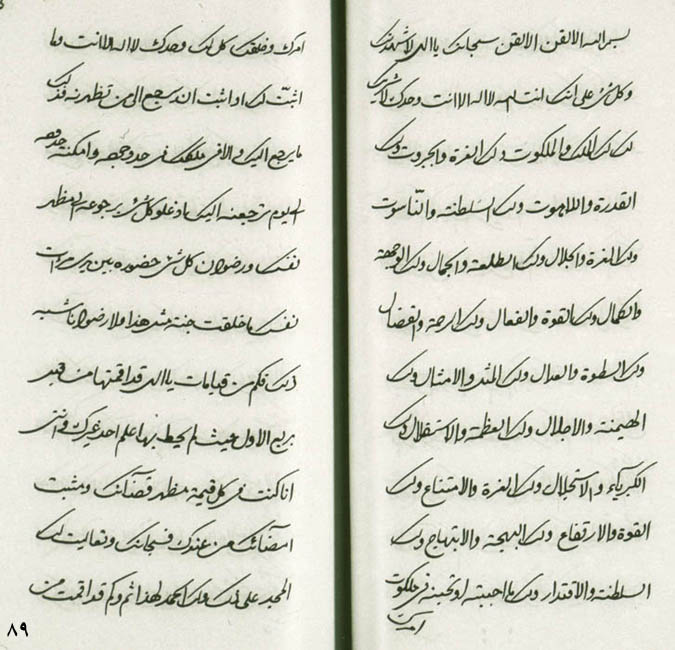 بسم الله الاتقن الاتقن سبحانك يا الهی لاشهدنك
وكل شیء علی انك انت الله لا اله الا انت وحدك لا شريك
لك لك الملك والملكوت ولك العزة والجبروت ولك
القدرة واللاهوت ولك السلطنة والناسوت
ولك العزة والجلال ولك الطلعة والجمال ولك الوجهة
والكمال ولك القوة والفعال ولك الرحمة والفضال
ولك السطوة والعدال ولك المثل والامثال ولك
الهيمنة والاجلال ولك العظمة والاستقلال ولك
الكبرياء والاستجلال ولك العزة والامتناع ولك
القوة والارتفاع ولك البهجة والابتهاج ولك
السلطنة والاقتدار ولك ما احببته او تحبنه فی ملكوت
امرك
امرك وخلقك كل لك وحدك لا اله الا انت وما
اثبتّ لك او اثبت اذ يرجع الی من تظهرنه فذلك
ما يرجع اليك والا فی ملكك فی حده
الی يوم ترجعنه اليك اذ علو كل شیء برجوعه الی مظهر
نفسك ورضوان كل شیء حضوره بين يدی مرات
نفسك ما خلقت جنة مثل هذا ولا رضوانا شبه
ذلك فكم من قيامات يا الهی قد اقمتها من قبل
بديع الاول حيث لم يحط بها علم احد غيرك واننی
انا كنت فی كل قيمة مظهر قضائك ومثبت
امضائك من عندك فسبحانك وتعاليت لك
الحمد علی ذلك ولك الحمد لهذا ثم وكم قد اقمت من
٨٩